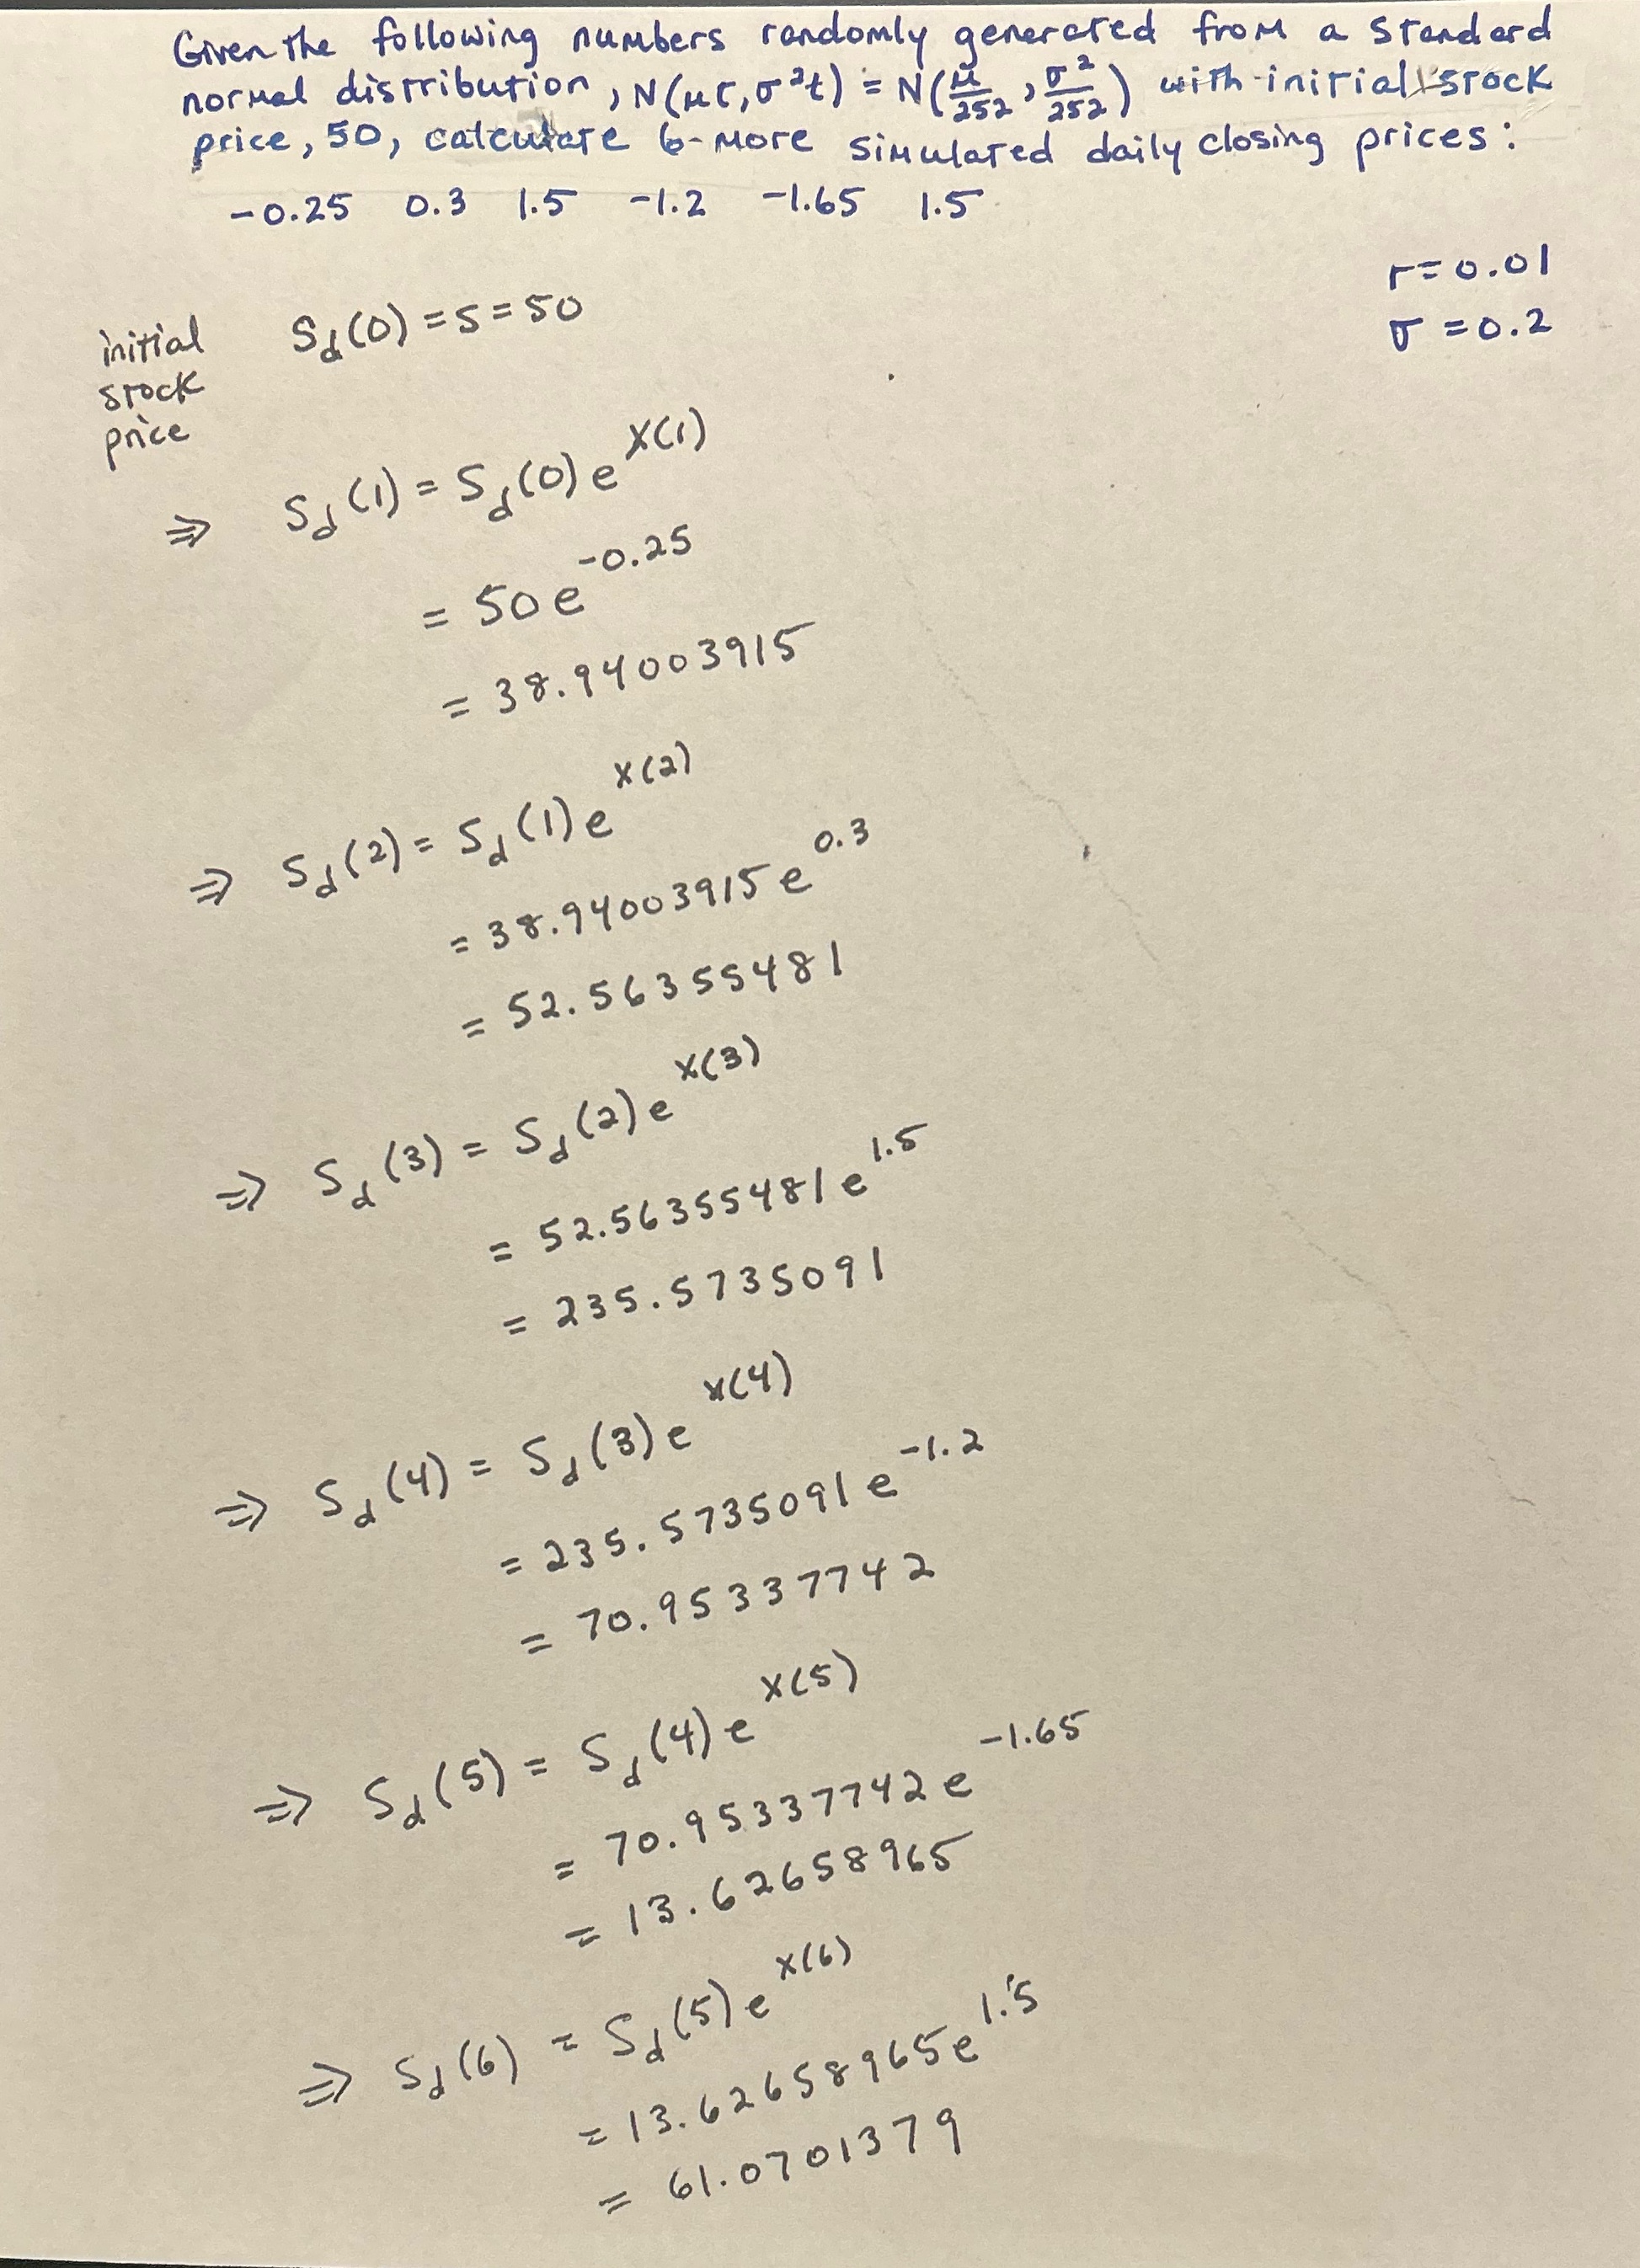 Given the following numbers randomly generated from a standard
normal distribution, N(μt, σ²t) = N(μ/252, σ²/252) with initial stock
price, 50, calculate 6 more simulated daily closing prices:
-0.25 0.3 1.5 -1.2 -1.65 1.5
r = 0.01
σ = 0.2
initial
stock
price
S_d(0) = S = 50
⇒ S_d(1) = S_d(0) e^X(1)
= 50 e^-0.25
= 38.94003915
⇒ S_d(2) = S_d(1) e^X(2)
= 38.94003915 e^0.3
= 52.56355481
⇒ S_d(3) = S_d(2) e^X(3)
= 52.56355481 e^1.5
= 235.5735091
⇒ S_d(4) = S_d(3) e^X(4)
= 235.5735091 e^-1.2
= 70.95337742
⇒ S_d(5) = S_d(4) e^X(5)
= 70.95337742 e^-1.65
= 13.62658965
⇒ S_d(6) = S_d(5) e^X(6)
= 13.62658965 e^1.5
= 61.0701379